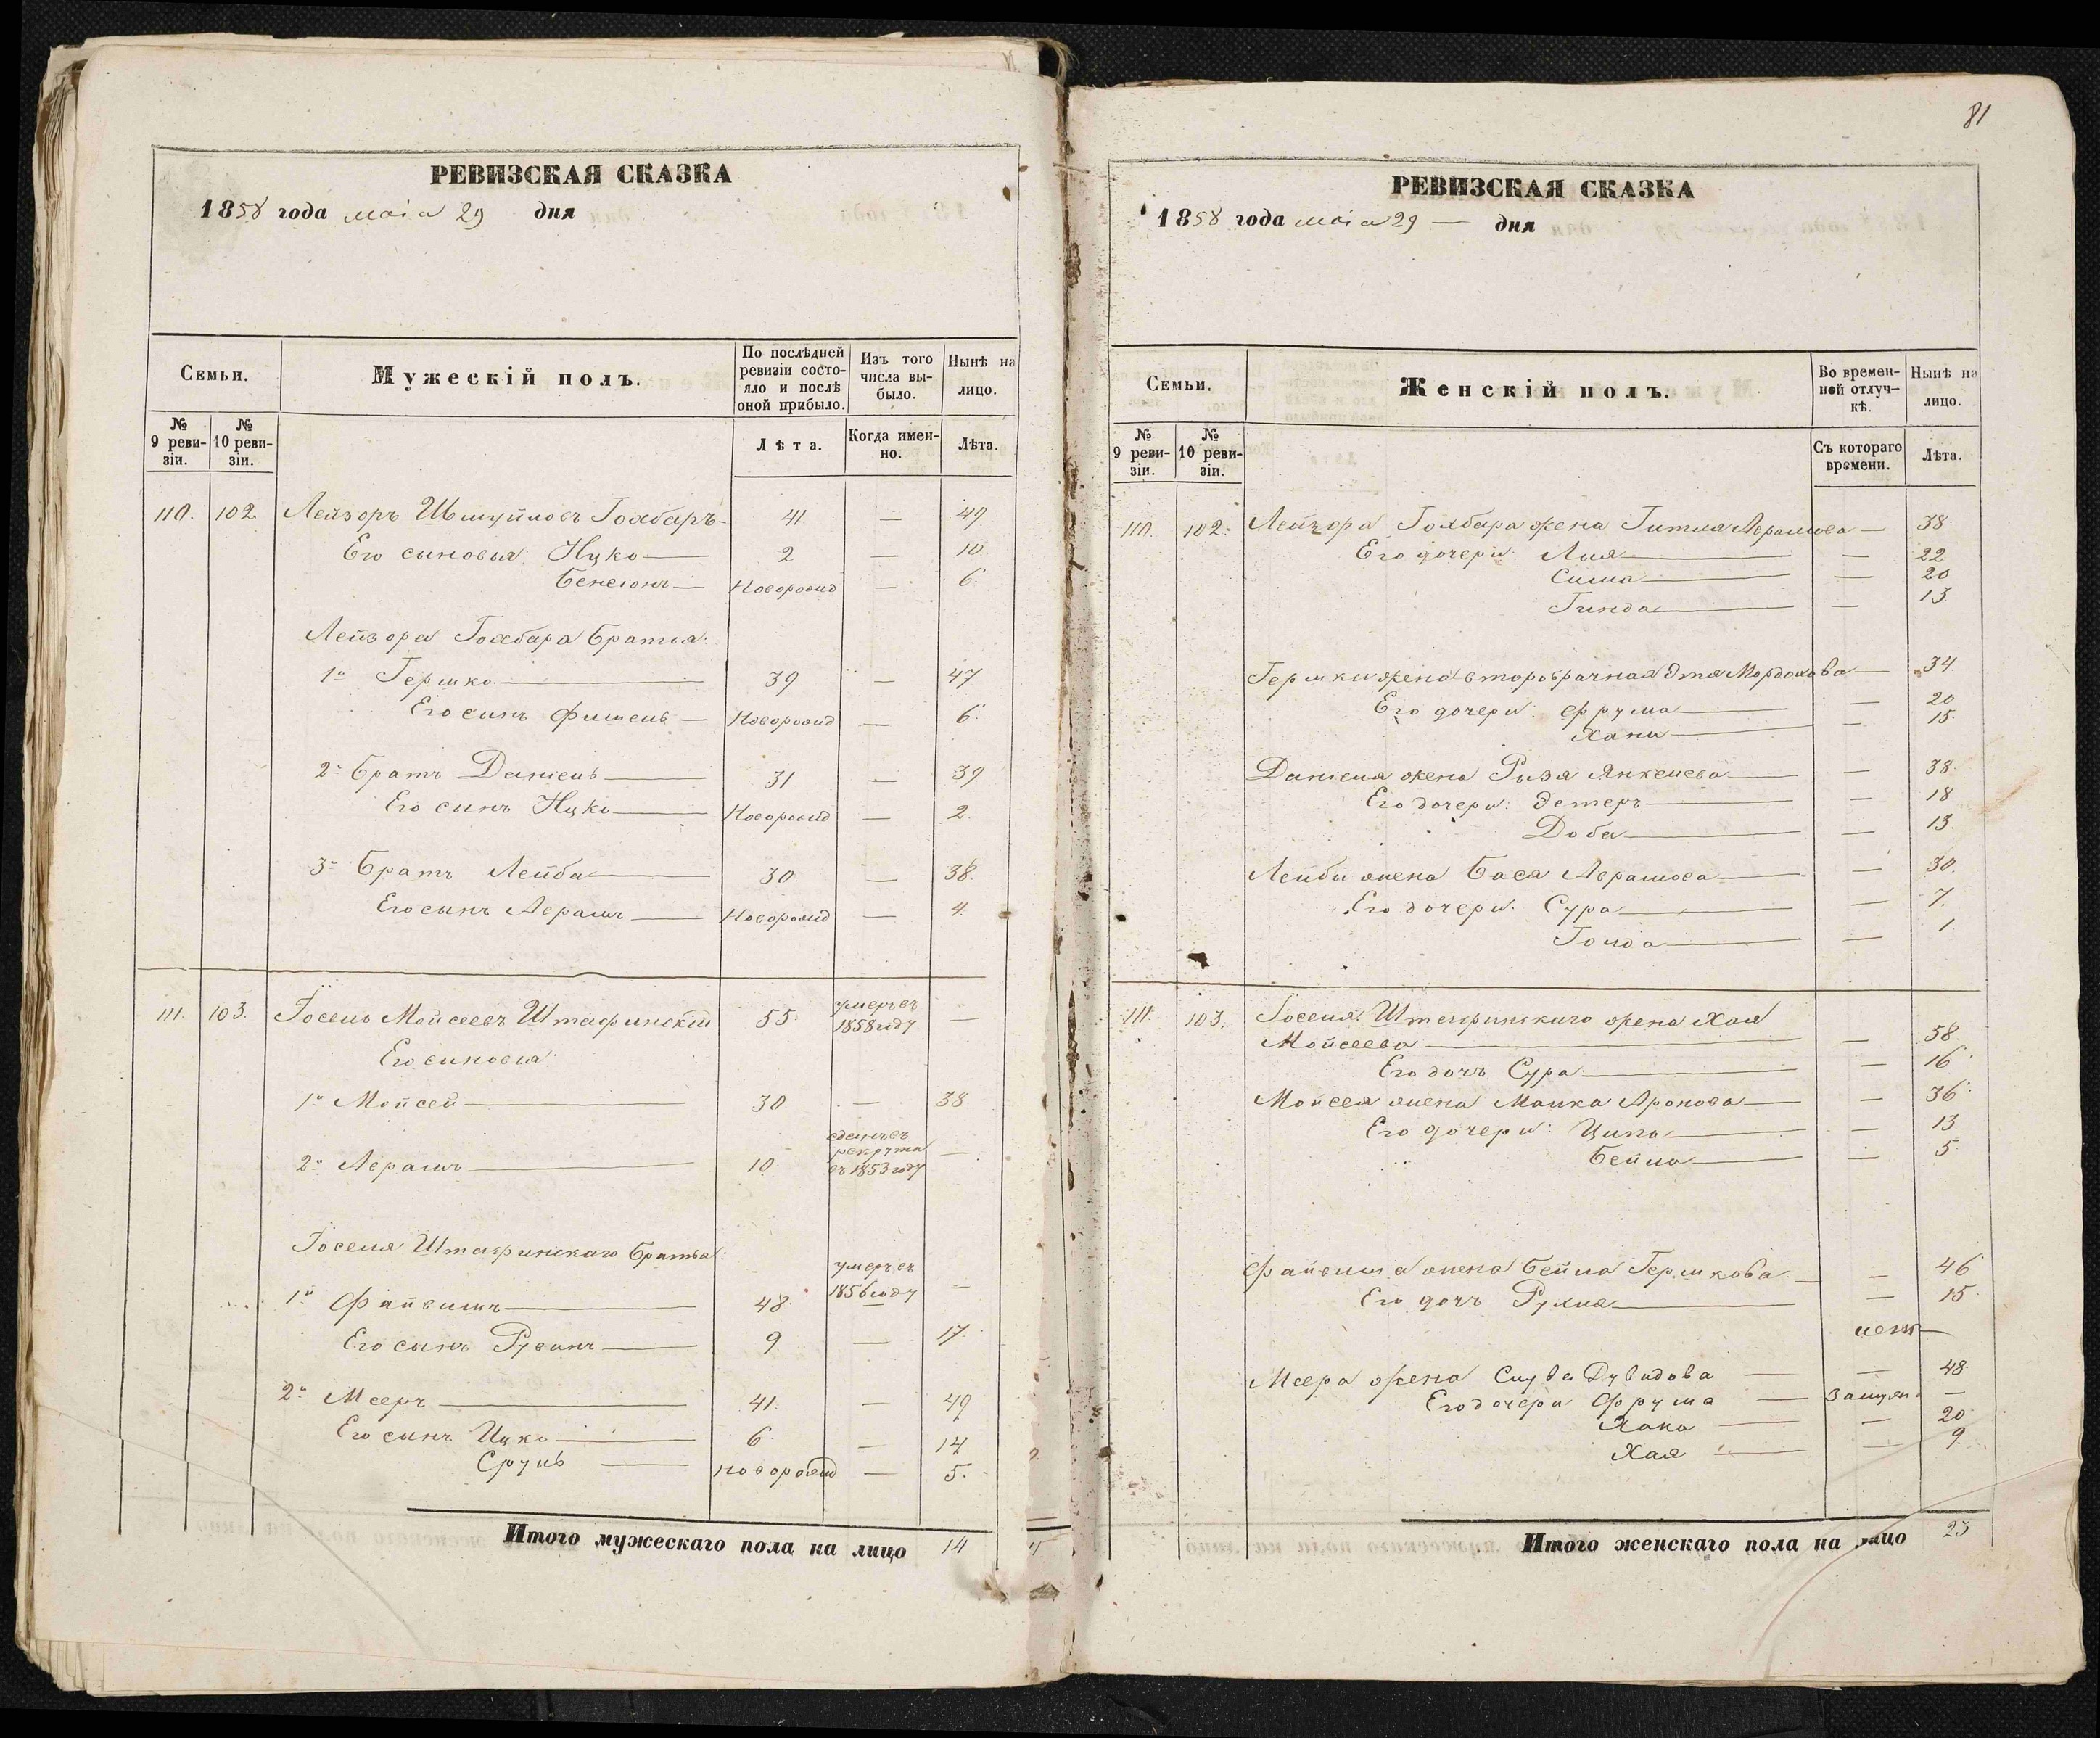 РЕВИЗСКАЯ СКАЗКА
1858 года маія 29 дня
Семьи.
Мужескій полъ.
По послѣдней ревизіи состояло и послѣ оной прибыло.
Изъ того числа выбыло.
Нынѣ на лицо.
№ 9 ревизіи.
№ 10 ревизіи.
Лѣта.
Когда именно.
Лѣта.
110. 102 Лейзоръ Шмуйловъ Гохбаръ 41 — 49
Его сыновья: Ицко 2 — 10.
Бенсіонъ Новорожд — 6.
Лейзора Гохбара братья:
1й Гершко 39 — 47
Его сынъ Фишель Новорожд — 6.
2й братъ Даніель 31 — 39
Его сынъ Ицко Новорожд — 2.
3й братъ Лейба 30 — 38.
Его сынъ Аврамъ Новорожд — 4.
111. 103. Іосель Мойсеевъ Штафинскій 55 умеръ въ 1858 году —
Его сыновья:
1й Мойсей 30 — 38
2й Аврамъ 10 сданъ въ рекруты въ 1853 году —
Іоселя Штафинскаго братья:
1й Файвишъ 48. умеръ въ 1856 году —
Его сынъ Рувинъ 9 — 17.
2й Мееръ 41. — 49
Его сынъ Ицко 6 — 14
Сруль новорожд — 5.
Итого мужескаго пола на лицо 14
81
РЕВИЗСКАЯ СКАЗКА
1858 года маія 29 — дня
Семьи.
Женскій полъ.
Во временной отлучкѣ.
Нынѣ на лицо.
№ 9 ревизіи.
№ 10 ревизіи.
Съ котораго времени.
Лѣта.
110. 102. Лейзора Гохбара жена Гитля Аврамова — 38
Его дочери: Лия — 22
Сима — 20
Гинда — 13
Гершки жена второбрачная Этя Мордохова — 34.
Его дочери: Фрума — 20
Хана — 15.
Даніеля жена Рыза Янкелева — 38.
Его дочери: Эстеръ — 18
Доба — 13.
Лейбы жена Бася Аврамова — 30.
Его дочери: Сура — 7.
Голда — 1
111. 103. Іоселя Штафинскаго жена Хая
Мойсеева — 58.
Его дочь Сура — 16
Мойсея жена Малка Аронова — 36
Его дочери: Ципа — 13
Бейла — 5.
Файвиша жена Бейла Гершкова — — 46
Его дочь Рухля — 15
Меера жена Слува Дувидова — — 48.
Его дочери Фрума — Замуж. —
Хана — — 20
Хая — — 9.
Итого женскаго пола на лицо 23